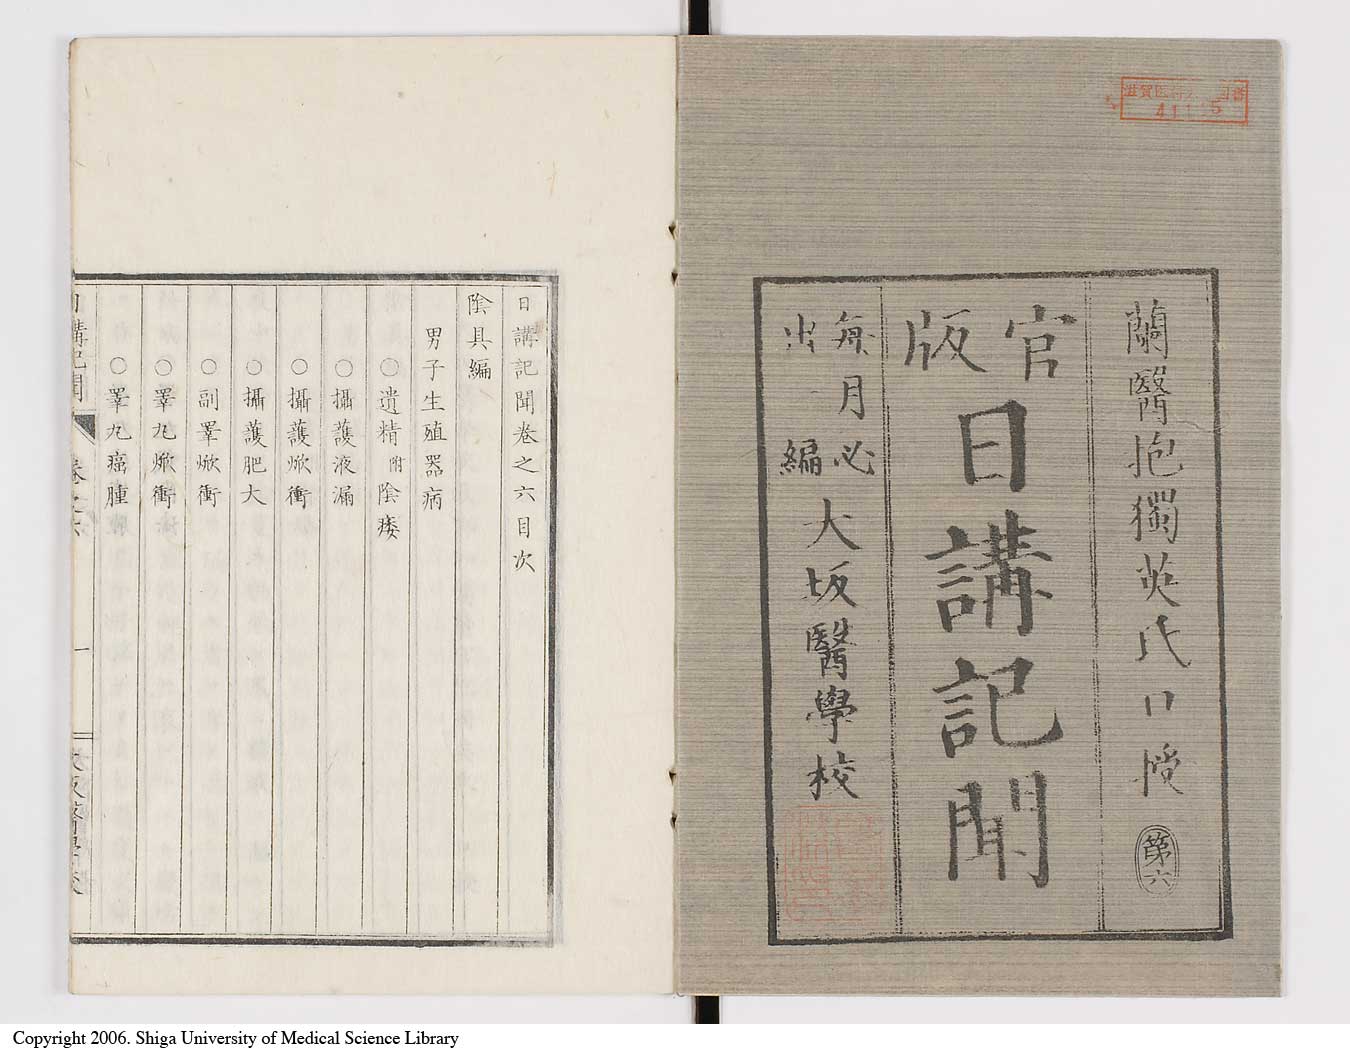 蘭醫抱獨英氏口授
第六
官版
日講記聞
毎月必
出編
大坂醫學校
日講記聞卷之六目次
陰具編
男子生殖器病
○遺精附陰痿
○攝護液漏
○攝護焮衝
○攝護肥大
○副睪焮衝
○睪丸焮衝
○睪丸癌腫
日講記聞
卷之六
一
大坂醫學校
Copyright 2006. Shiga University of Medical Science Library